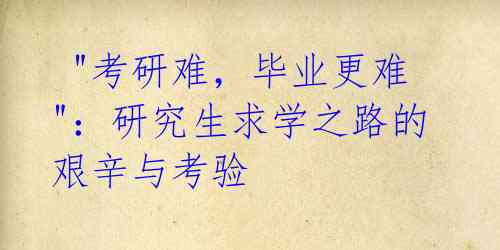 "考研难，毕业更难
"：研究生求学之路的
艰辛与考验